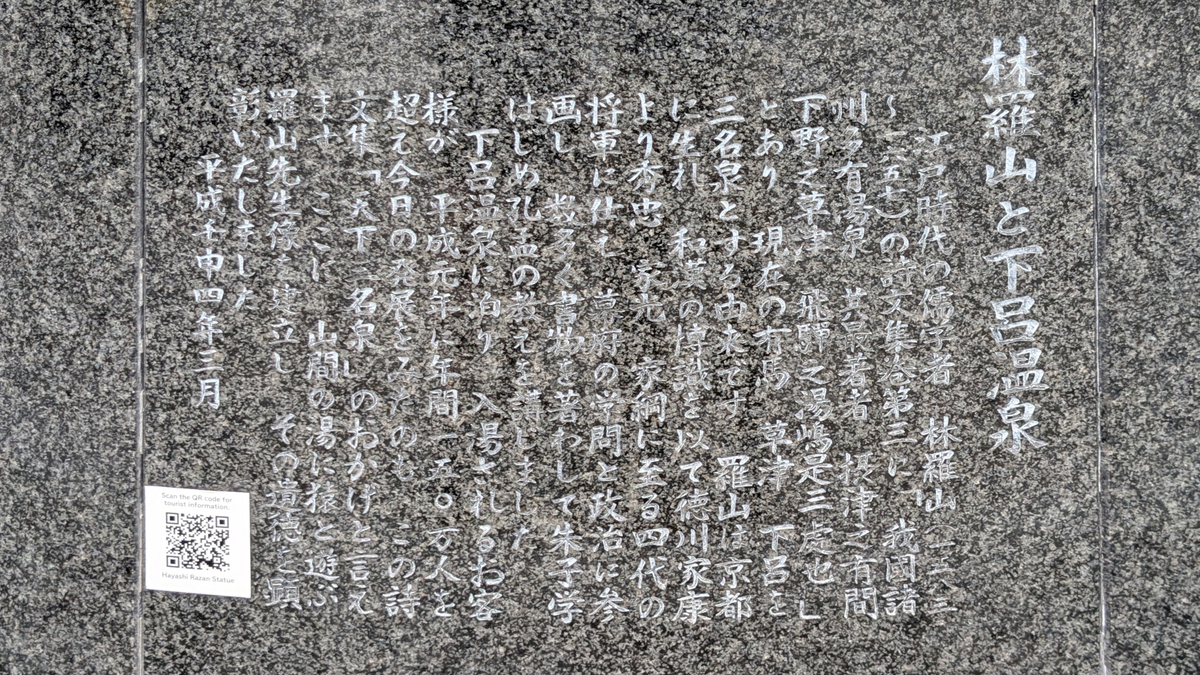 林羅山と下呂温泉
江戸時代の儒学者 林羅山(一五八三
〜一六五七)の詩文集巻第三に「我国諸
州多有湯泉 其最著者 摂津之有間
下野之草津 飛騨之湯嶋是三処也」
とあり 現在の有馬 草津 下呂を
三名泉とする由来です 羅山は京都
に生れ 和漢の博識を以て徳川家康
より秀忠 家光 家綱に至る四代の
将軍に仕え 幕府の学問と政治に参
画し 数多く書物を著わして朱子学
はじめ孔孟の教えを講じました
下呂温泉に泊り 入湯されるお客
様が 平成元年に年間一五〇万人を
超え今日の発展をみたのも この詩
文集「天下三名泉」のおかげと言え
ます ここに 山間の湯に猿と遊ぶ
羅山先生像を建立し その遺徳を顕
彰いたしました
平成壬申四年三月
Scan the QR code for
tourist information.
Hayashi Razan Statue